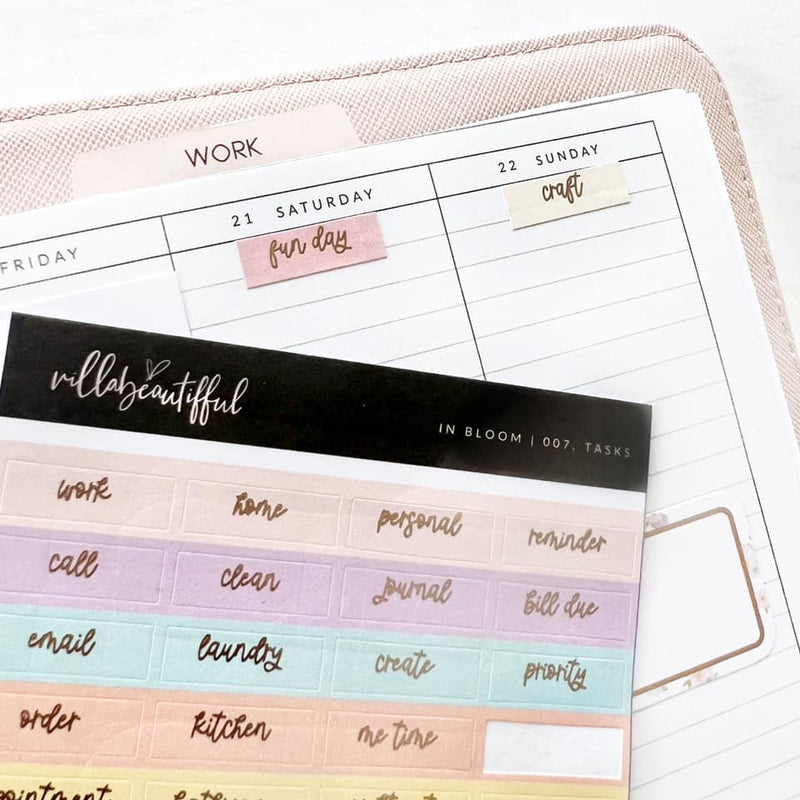 WORK
FRIDAY
21 SATURDAY
22 SUNDAY
fun day
craft
villabeautifful
IN BLOOM | 007. TASKS
work home personal reminder
call clean journal bill due
email laundry create priority
order kitchen me time